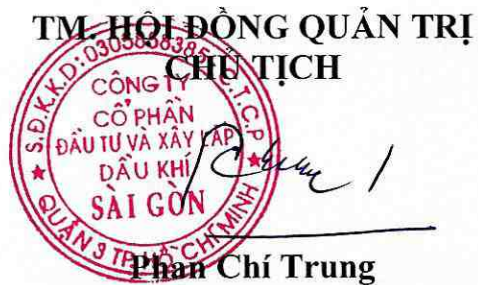 TM. HỘI ĐỒNG QUẢN TRỊ
CHỦ TỊCH
S.Đ.K.K.D: 0305838385 C.T.C.P
CÔNG TY
CỔ PHẦN
ĐẦU TƯ VÀ XÂY LẮP
DẦU KHÍ
SÀI GÒN
QUẬN 3 TP. HỒ CHÍ MINH
Phan Chí Trung